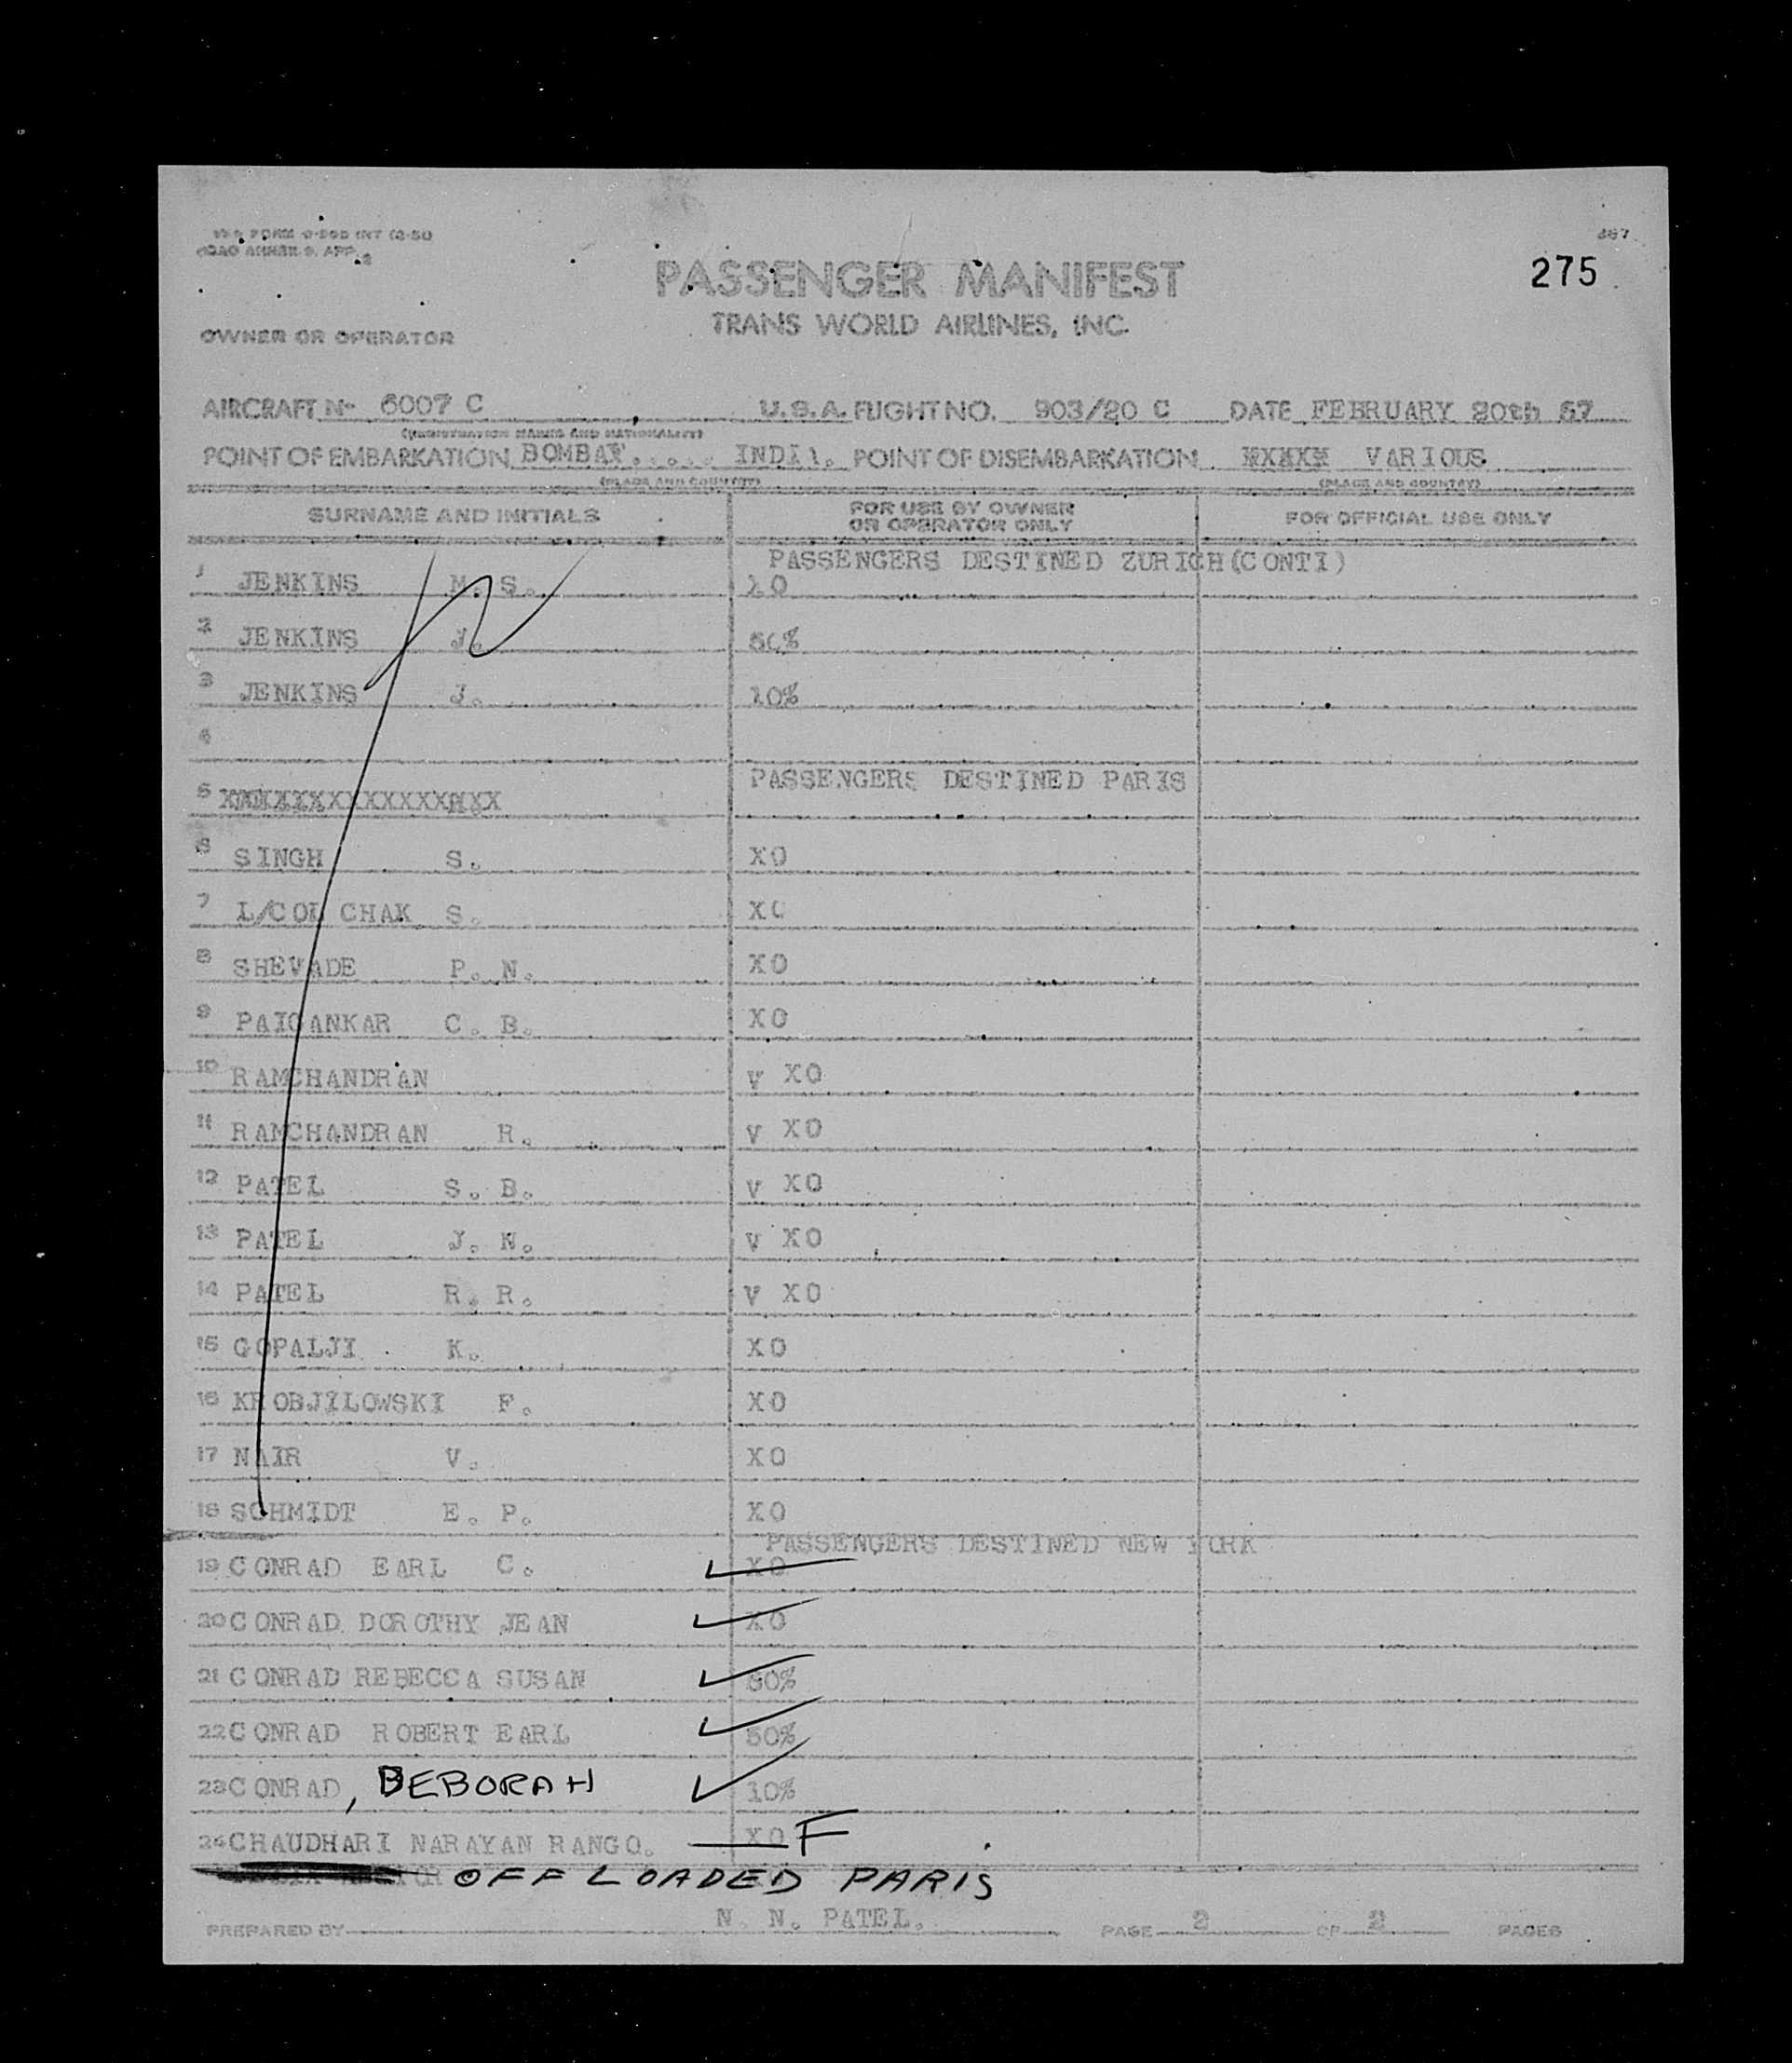 367
275
PASSENGER MANIFEST
TRANS WORLD AIRLINES, INC.
OWNER OR OPERATOR
AIRCRAFT No 6007 C U.S.A. FLIGHT NO. 903/20 C DATE FEBRUARY 20th 57
(REGISTRATION MARKS AND NATIONALITY)
POINT OF EMBARKATION BOMBAY. INDIA. POINT OF DISEMBARKATION VARIOUS
(PLACE AND COUNTRY) (PLACE AND COUNTRY)
SURNAME AND INITIALS FOR USE BY OWNER OR OPERATOR ONLY FOR OFFICIAL USE ONLY
PASSENGERS DESTINED ZURICH(CONTI)
1 JENKINS M. S. XO
2 JENKINS J. 50%
3 JENKINS J. 10%
4
PASSENGERS DESTINED PARIS
5
6 SINGH S. XO
7 L/COL CHAK S. XO
8 SHEVADE P. N. XO
9 PAIGANKAR C. B. XO
10 RAMCHANDRAN V XO
11 RAMCHANDRAN R. V XO
12 PATEL S. B. V XO
13 PATEL J. N. V XO
14 PATEL R. R. V XO
15 GOPALJI K. XO
16 KROBJILOWSKI F. XO
17 NAIR V. XO
18 SCHMIDT E. P. XO
PASSENGERS DESTINED NEW YORK
19 CONRAD EARL C. XO
20 CONRAD DOROTHY JEAN XO
21 CONRAD REBECCA SUSAN 50%
22 CONRAD ROBERT EARL 50%
23 CONRAD, DEBORAH 10%
24 CHAUDHARI NARAYAN RANGO. XO F
OFF LOADED PARIS
PREPARED BY N. N. PATEL. PAGE 2 OF 2 PAGES